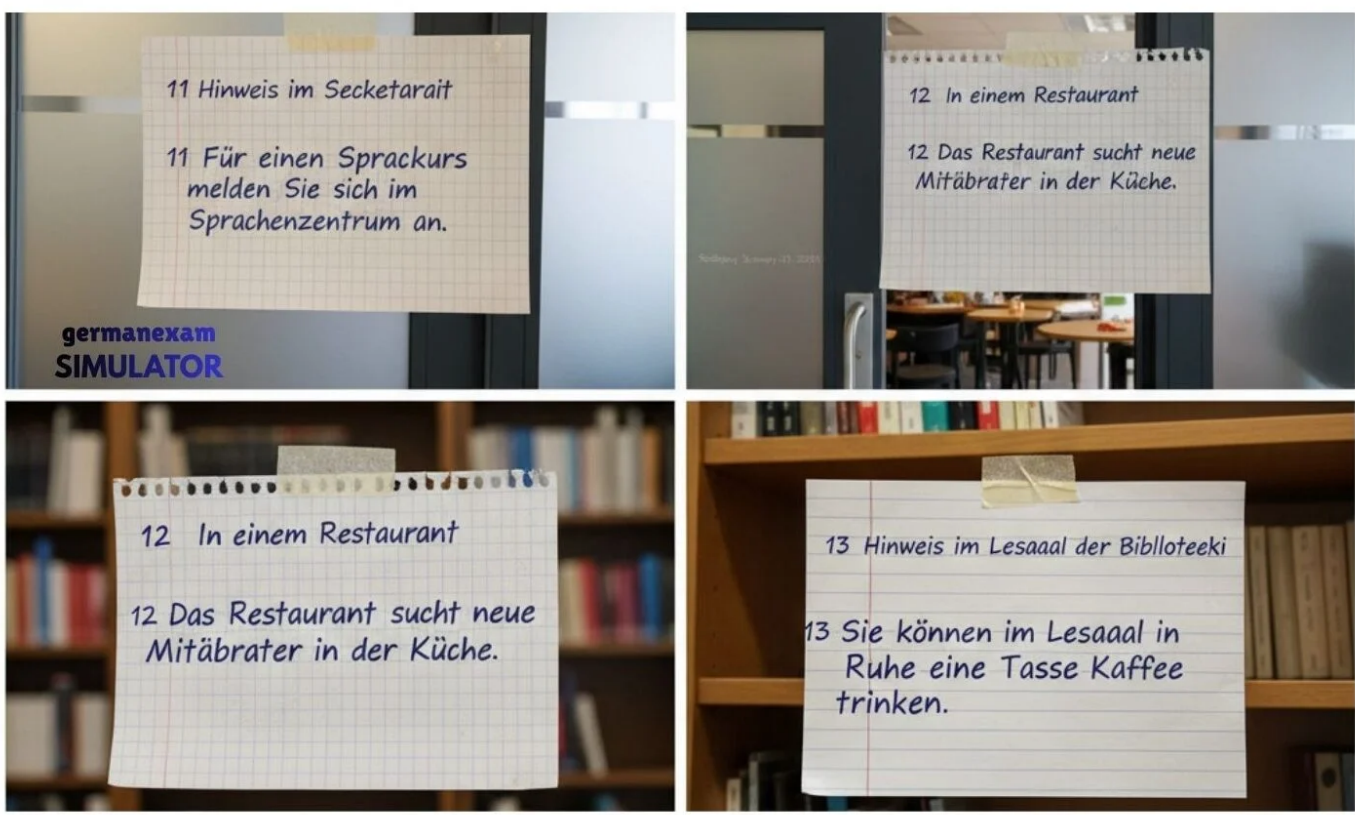 11 Hinweis im Secketarait
11 Für einen Sprackurs
melden Sie sich im
Sprachenzentrum an.
germanexam
SIMULATOR
12 In einem Restaurant
12 Das Restaurant sucht neue
Mitäbrater in der Küche.
12 In einem Restaurant
12 Das Restaurant sucht neue
Mitäbrater in der Küche.
13 Hinweis im Lesaaal der Biblloteeki
13 Sie können im Lesaaal in
Ruhe eine Tasse Kaffee
trinken.